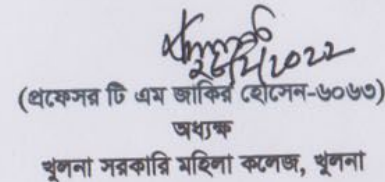 (প্রফেসর টি এম জাকির হোসেন-৬০৬৩)
অধ্যক্ষ
খুলনা সরকারি মহিলা কলেজ, খুলনা